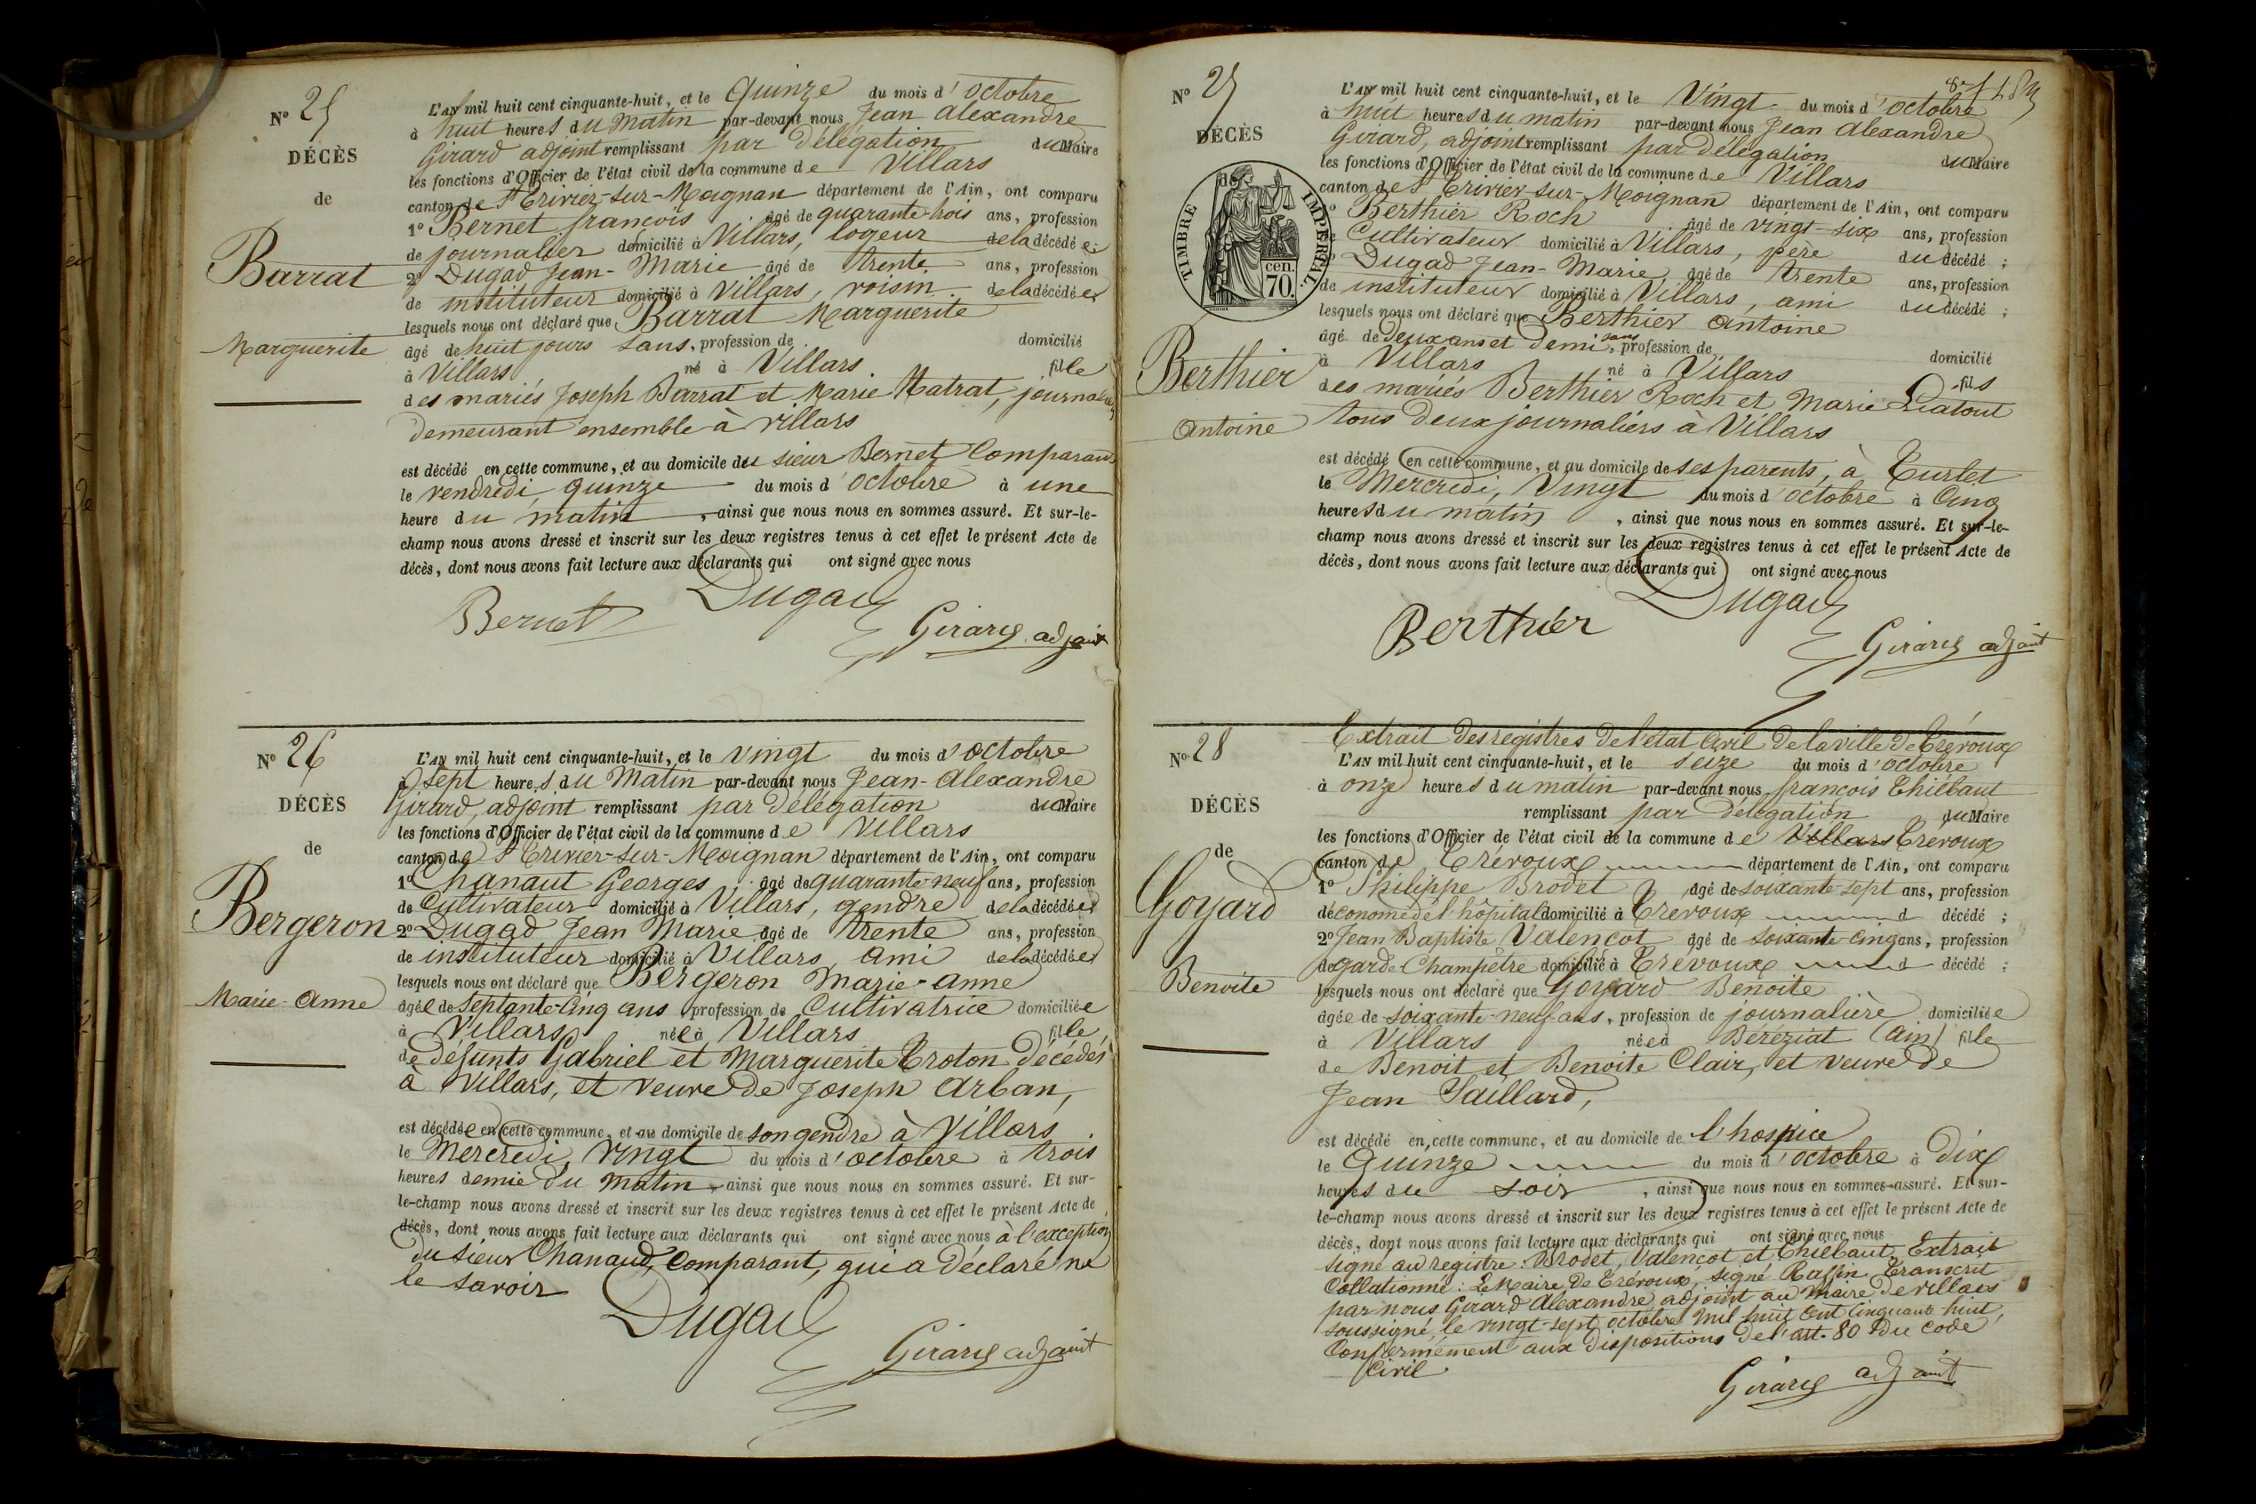 Nº 25
DÉCÈS
de
Barrat
Marguerite
L'AN mil huit cent cinquante-huit, et le Quinze du mois d'octobre
à huit heures du Matin par-devant nous Jean Alexandre
Girard adjoint remplissant par délégation du Maire
les fonctions d'Officier de l'état civil de la commune de Villars
canton de St Trivier-sur-Moignan département de l'Ain, ont comparu
1º Bernet françois âgé de quarante trois ans, profession
de journalier domicilié à Villars, logeur de la décédée;
2º Dugad Jean-Marie âgé de trente ans, profession
de instituteur domicilié à Villars, voisin de la décédée
lesquels nous ont déclaré que Barrat Marguerite
âgé de huit jours sans, profession de domicilié
à Villars né à Villars fille
des mariés Joseph Barrat et Marie Matrat, journaliers
demeurant ensemble à villars
est décédé en cette commune, et au domicile du sieur Bernet Comparant
le vendredi quinze du mois d'octobre à une
heure du matin, ainsi que nous nous en sommes assuré. Et sur-le-
champ nous avons dressé et inscrit sur les deux registres tenus à cet effet le présent Acte de
décès, dont nous avons fait lecture aux déclarants qui ont signé avec nous
Bernet Dugad
Girard adjoint
Nº 26
DÉCÈS
de
Bergeron
Marie-Anne
L'AN mil huit cent cinquante-huit, et le vingt du mois d'octobre
à sept heures du Matin par-devant nous Jean-Alexandre
Girard, adjoint remplissant par délégation du Maire
les fonctions d'Officier de l'état civil de la commune de Villars
canton de St Trivier-sur-Moignan département de l'Ain, ont comparu
1º Chanaut Georges âgé de quarante-neuf ans, profession
de Cultivateur domicilié à Villars, gendre de la décédée
2º Dugad Jean Marie âgé de trente ans, profession
de instituteur domicilié à Villars, ami de la décédée
lesquels nous ont déclaré que Bergeron Marie-anne
âgée de Septante-Cinq ans profession de Cultivatrice domiciliée
à Villars née à Villars fille
de défunts Gabriel et Marguerite Troton décédés
à Villars, et veuve de Joseph Arban,
est décédée en cette commune, et au domicile de son gendre à Villars
le Mercredi, vingt du mois d'octobre à trois
heures demie du matin, ainsi que nous nous en sommes assuré. Et sur-
le-champ nous avons dressé et inscrit sur les deux registres tenus à cet effet le présent Acte de
décès, dont nous avons fait lecture aux déclarants qui ont signé avec nous à l'exception
du sieur Chanaud, Comparant, qui a déclaré ne
le savoir
Dugad
Girard adjoint
Nº 27
DÉCÈS
de
TIMBRE IMPÉRIAL
70 cen.
Berthier
Antoine
L'AN mil huit cent cinquante-huit, et le Vingt du mois d'octobre
à huit heures du matin par-devant nous Jean Alexandre
Girard, adjoint remplissant par délégation du Maire
les fonctions d'Officier de l'état civil de la commune de Villars
canton de St Trivier-sur-Moignan département de l'Ain, ont comparu
1º Berthier Roch âgé de vingt-six ans, profession
de Cultivateur domicilié à Villars, père du décédé;
2º Dugad Jean-Marie âgé de trente ans, profession
de instituteur domicilié à Villars, ami du décédé;
lesquels nous ont déclaré que Berthier Antoine
âgé de deux ans et demi, sans profession de domicilié
à Villars né à Villars fils
des mariés Berthier Roch et Marie Liatout
tous deux journaliers à Villars
est décédé en cette commune, et au domicile de ses parents, à Turlet
le Mercredi, Vingt du mois d'octobre à Cinq
heures du matin, ainsi que nous nous en sommes assuré. Et sur-le-
champ nous avons dressé et inscrit sur les deux registres tenus à cet effet le présent Acte de
décès, dont nous avons fait lecture aux déclarants qui ont signé avec nous
Berthier Dugad
Girard adjoint
Nº 28
DÉCÈS
de
Goyard
Benoite
Extrait des registres de l'état Civil de la ville de Trévoux
L'AN mil huit cent cinquante-huit, et le seize du mois d'octobre
à onze heures du matin par-devant nous françois Thiébaut
remplissant par délégation du Maire
les fonctions d'Officier de l'état civil de la commune de Villars Trévoux
canton de Trévoux département de l'Ain, ont comparu
1º Philippe Brodet âgé de soixante-sept ans, profession
d'économe de l'hôpital domicilié à Trévoux d décédé;
2º Jean Baptiste Valençot âgé de soixante-cinq ans, profession
de garde Champêtre domicilié à Trévoux d décédé;
lesquels nous ont déclaré que Goyard Benoite
âgée de soixante-neuf ans, profession de journalière domiciliée
à Villars née à Béréziat (Ain) fille
de Benoit et Benoite Clair, et veuve de
Jean Saillard,
est décédé en cette commune, et au domicile de l'hospice
le Quinze du mois d'octobre à dix
heures du soir, ainsi que nous nous en sommes assuré. Et sur-
le-champ nous avons dressé et inscrit sur les deux registres tenus à cet effet le présent Acte de
décès, dont nous avons fait lecture aux déclarants qui ont signé avec nous
signé au registre: Brodet, Valençot et Thiébaut, Extrait
Collationné: Le Maire de Trévoux, signé Raffin Transcrit
par nous Girard Alexandre adjoint au Maire de villars
soussigné, le vingt-sept octobre mil huit cent cinquante-huit,
Conformément aux dispositions de l'art. 80 du Code
Civil
Girard adjoint